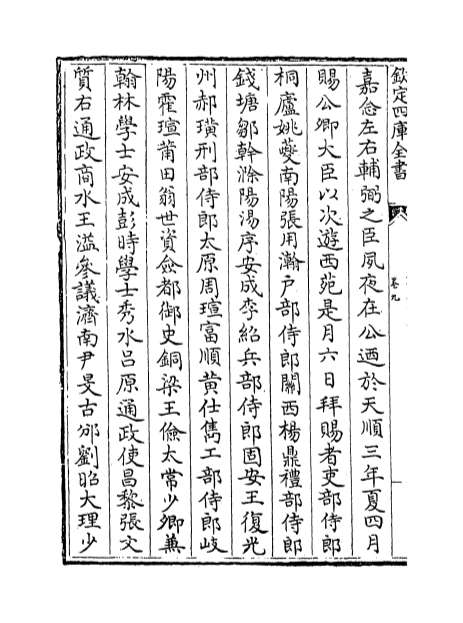 欽定四庫全書
卷九
嘉念左右輔弼之臣夙夜在公迺於天順三年夏四月
賜公卿大臣以次遊西苑是月六日拜賜者吏部侍郎
桐廬姚夔南陽張用瀚戶部侍郎關西楊鼎禮部侍郎
錢塘鄒幹滁陽湯序安成李紹兵部侍郎固安王復光
州郝璜刑部侍郎太原周瑄富順黄仕儁工部侍郎岐
陽霍瑄莆田翁世資僉都御史銅梁王儉太常少卿兼
翰林學士安成彭時學士秀水吕原通政使昌黎張文
質右通政商水王溢參議濟南尹旻古邠劉昭大理少